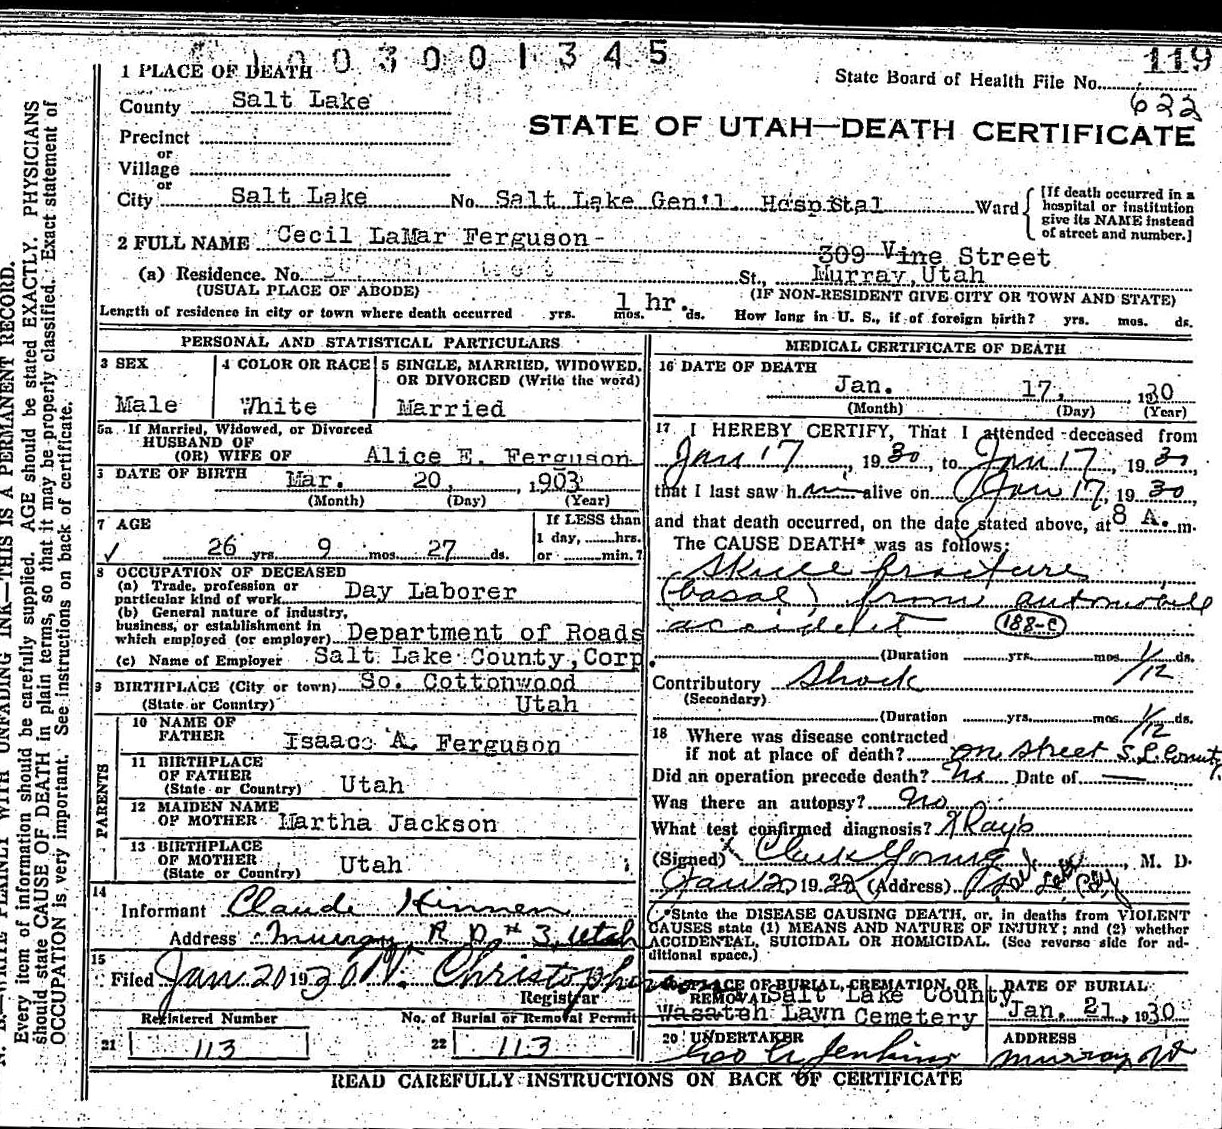 1003001345
119
State Board of Health File No.
622
1 PLACE OF DEATH
County Salt Lake
STATE OF UTAH—DEATH CERTIFICATE
Precinct
or
Village
or
City Salt Lake No. Salt Lake Gen'l. Hospital Ward
[If death occurred in a
hospital or institution
give its NAME instead
of street and number.]
2 FULL NAME Cecil LaMar Ferguson-
309 Vine Street
(a) Residence. No. St., Murray, Utah
(USUAL PLACE OF ABODE) (IF NON-RESIDENT GIVE CITY OR TOWN AND STATE)
Length of residence in city or town where death occurred yrs. mos. 1 hr. ds. How long in U. S., if of foreign birth? yrs. mos. ds.
PERSONAL AND STATISTICAL PARTICULARS
3 SEX
Male
4 COLOR OR RACE
White
5 SINGLE, MARRIED, WIDOWED,
OR DIVORCED (Write the word)
Married
5a If Married, Widowed, or Divorced
HUSBAND OF
(OR) WIFE OF Alice E. Ferguson
DATE OF BIRTH Mar. 20, 1903
(Month) (Day) (Year)
7 AGE
26 yrs. 9 mos. 27 ds.
If LESS than
1 day, hrs.
or min.?
8 OCCUPATION OF DECEASED
(a) Trade, profession or
particular kind of work Day Laborer
(b) General nature of industry,
business, or establishment in
which employed (or employer) Department of Roads
(c) Name of Employer Salt Lake County, Corp.
9 BIRTHPLACE (City or town) So. Cottonwood
(State or Country) Utah
PARENTS
10 NAME OF
FATHER Isaac A. Ferguson
11 BIRTHPLACE
OF FATHER
(State or Country) Utah
12 MAIDEN NAME
OF MOTHER Martha Jackson
13 BIRTHPLACE
OF MOTHER
(State or Country) Utah
14
Informant Claude Kinnen
Address Murray, R.D. # 3, Utah
15
Filed Jan 20 1930 W. Christopherson
Registrar
Registered Number
21 113
No. of Burial or Removal Permit
22 113
MEDICAL CERTIFICATE OF DEATH
16 DATE OF DEATH
Jan. 17, 1930
(Month) (Day) (Year)
17 I HEREBY CERTIFY, That I attended deceased from
Jan 17, 1930, to Jan 17, 1930
that I last saw him alive on Jan 17, 1930,
and that death occurred, on the date stated above, at 8 A. m.
The CAUSE DEATH* was as follows:
Skull fracture
(basal) from automobile
accident 188-c
(Duration yrs. mos. 1/12 ds.
Contributory Shock
(Secondary)
(Duration yrs. mos. 1/12 ds.
18 Where was disease contracted
if not at place of death? on street S.L. County
Did an operation precede death? No Date of —
Was there an autopsy? No
What test confirmed diagnosis? X Rays
(Signed) Clark Young, M. D.
Jan 20 1930 (Address) Salt Lake City
*State the DISEASE CAUSING DEATH, or, in deaths from VIOLENT
CAUSES state (1) MEANS AND NATURE OF INJURY; and (2) whether
ACCIDENTAL, SUICIDAL OR HOMICIDAL. (See reverse side for additional space.)
PLACE OF BURIAL, CREMATION, OR
REMOVAL Salt Lake County
Wasatch Lawn Cemetery
DATE OF BURIAL
Jan. 21, 1930
20 UNDERTAKER
Geo A Jenkins
ADDRESS
Murray Ut
READ CAREFULLY INSTRUCTIONS ON BACK OF CERTIFICATE
N. B.—WRITE PLAINLY WITH UNFADING INK—THIS IS A PERMANENT RECORD.
Every item of information should be carefully supplied. AGE should be stated EXACTLY. PHYSICIANS
should state CAUSE OF DEATH in plain terms, so that it may be properly classified. Exact statement of
OCCUPATION is very important. See instructions on back of certificate.